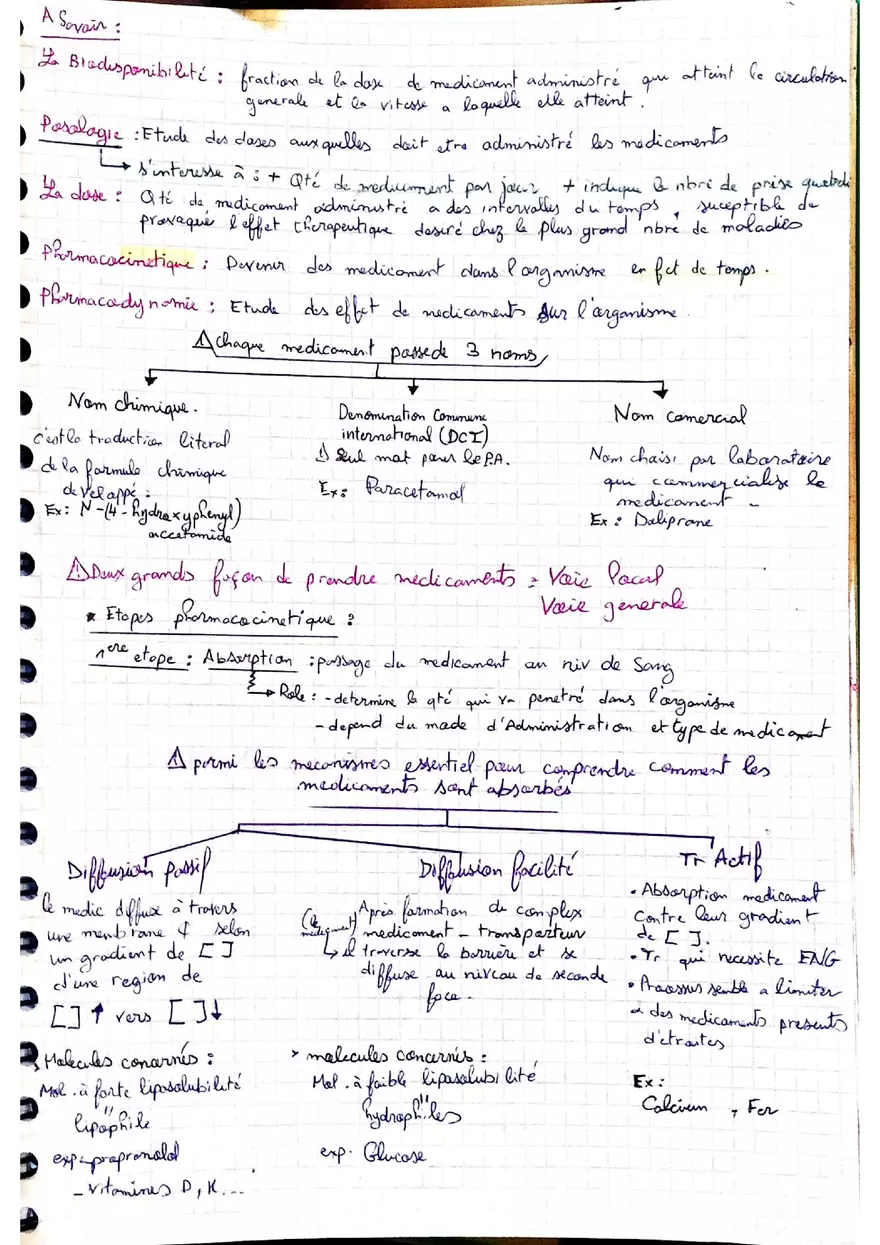 A Savoir :
La Biodisponibilité : fraction de la dose de medicament administré qui atteint la circulation
generale et la vitesse a laquelle elle atteint.
Posologie : Etude des doses auxquelles doit etre administré les medicaments
s'interesse à : + Qté de medicament par jour + indique le nbre de prise
La dose : Qté de medicament administré a des intervalles du temps, suceptible de
provoqué l'effet therapeutique desiré chez le plus grand nbre de malades
Pharmacocinetique : Devenir des medicament dans l'organisme en fct de temps.
Pharmacodynomie : Etude des effet de medicaments sur l'organisme.
⚠ chaque medicament possede 3 noms
Nom chimique.
c'est la traduction literal
de la formule chimique
developpé :
Ex : N-(4-hydroxyphenyl)
accetamide
Denomination Commune
international (DCI)
⚠ Seul mot pour le P.A.
Ex : Paracetamol
Nom comercial
Nom choisi par laboratoire
qui commercialise le
medicament -
Ex : Doliprane
⚠ Deux grands façon de prendre medicaments : Voie local
Voie generale
* Etapes pharmacocinetique :
1ere etape : Absorption : passage du medicament au niv de Sang
Role : - determine la qté qui va penetré dans l'organisme
- depend du mode d'Administration et type de medicament
⚠ parmi les mecanismes essentiel pour comprendre comment les
medicaments sont absorbés
Diffusion passif
le medic diffuse à travers
une membrane selon
un gradient de [ ]
d'une region de
[ ] ↑ vers [ ] ↓
> Molecules concernés :
Mol. à forte liposolubilité
"
lipophile
exp : propranolol
- vitamines D, K...
Diffusion facilité
(le medicament) Après formation de complex
medicament - transporteur
il traverse la barrière et se
diffuse au niveau de seconde
face.
> molecules concernés :
Mol. à faible liposolubilité
"
hydrophiles
exp. Glucose
Tr Actif
• Absorption medicament
contre leur gradient
de [ ].
• Tr qui necessite ENG
• Processus semble a limiter
a des medicaments presents
d'etroites
Ex :
Calcium, Fer